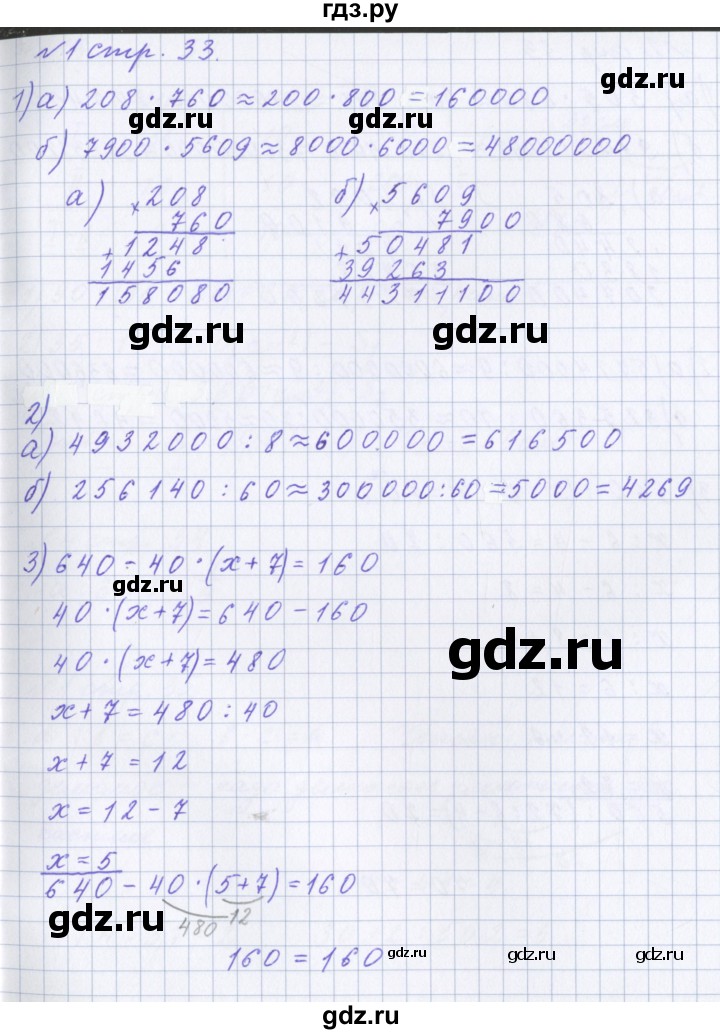 гдз.ру
№1 стр. 33.
gdz.ru
1) а) 208 · 760 ≈ 200 · 800 = 160000
gdz.ru gdz.ru
б) 7900 · 5609 ≈ 8000 · 6000 = 48000000
а) × 208 б) × 5609
760 7900
+ 1248 + 50481
1456 39263
158080 44311100
gdz.ru gdz.ru
2)
а) 4932000 : 8 ≈ 600000 = 616500
б) 256140 : 60 ≈ 300000 : 60 = 5000 = 4269
3) 640 - 40 · (x + 7) = 160
gdz.ru
40 · (x + 7) = 640 - 160
gdz.ru
40 · (x + 7) = 480
x + 7 = 480 : 40
x + 7 = 12
x = 12 - 7
x = 5
640 - 40 · (5 + 7) = 160
gdz.ru
480 12
160 = 160
gdz.ru gdz.ru gdz.ru
gdz.ru